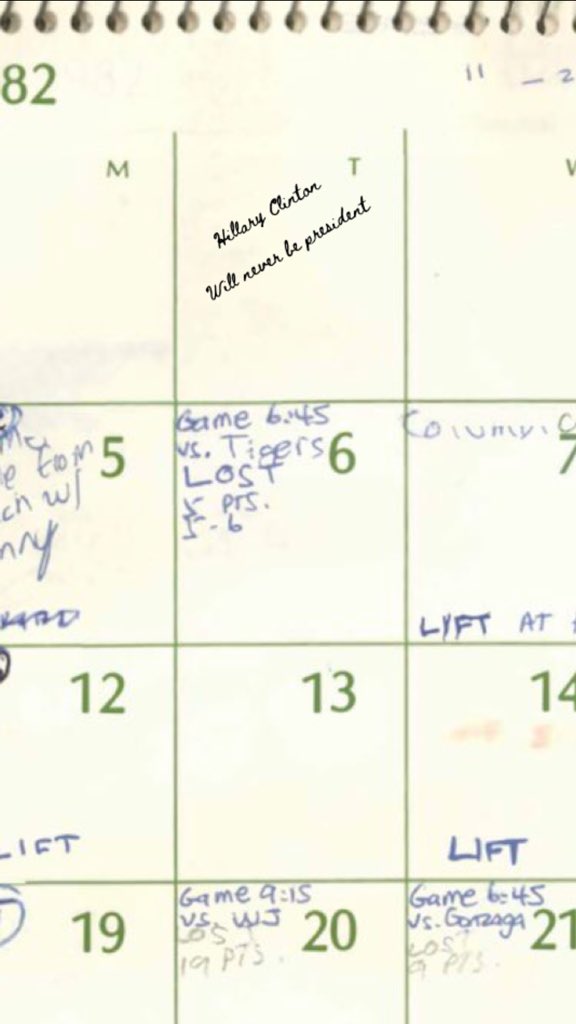 82
11 - 2
M
T
Hillary Clinton
Will never be president
5
Game 6:45
vs. Tigers
LOST
5 pts.
5-6
6
7
LIFT AT
12
13
14
LIFT
LIFT
19
Game 9:15
vs. WJ
LOS
19 PTS.
20
Game 6:45
vs. Gonzaga
LOST
9 PTS.
21